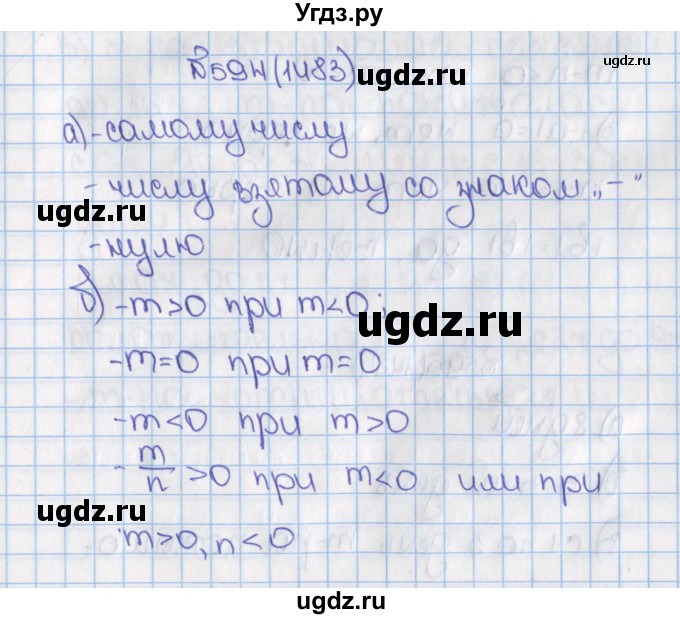 Угдз.ру
№594(1483)
ugdz.ru
ugdz.ru
а) -самому числу
-числу взятому со знаком „-"
ugdz.ru
-нулю
б) -m>0 при m<0;
ugdz.ru
-m=0 при m=0
-m<0 при m>0
-m/n >0 при m<0 или при
ugdz.ru
m>0, n<0
ugdz.ru